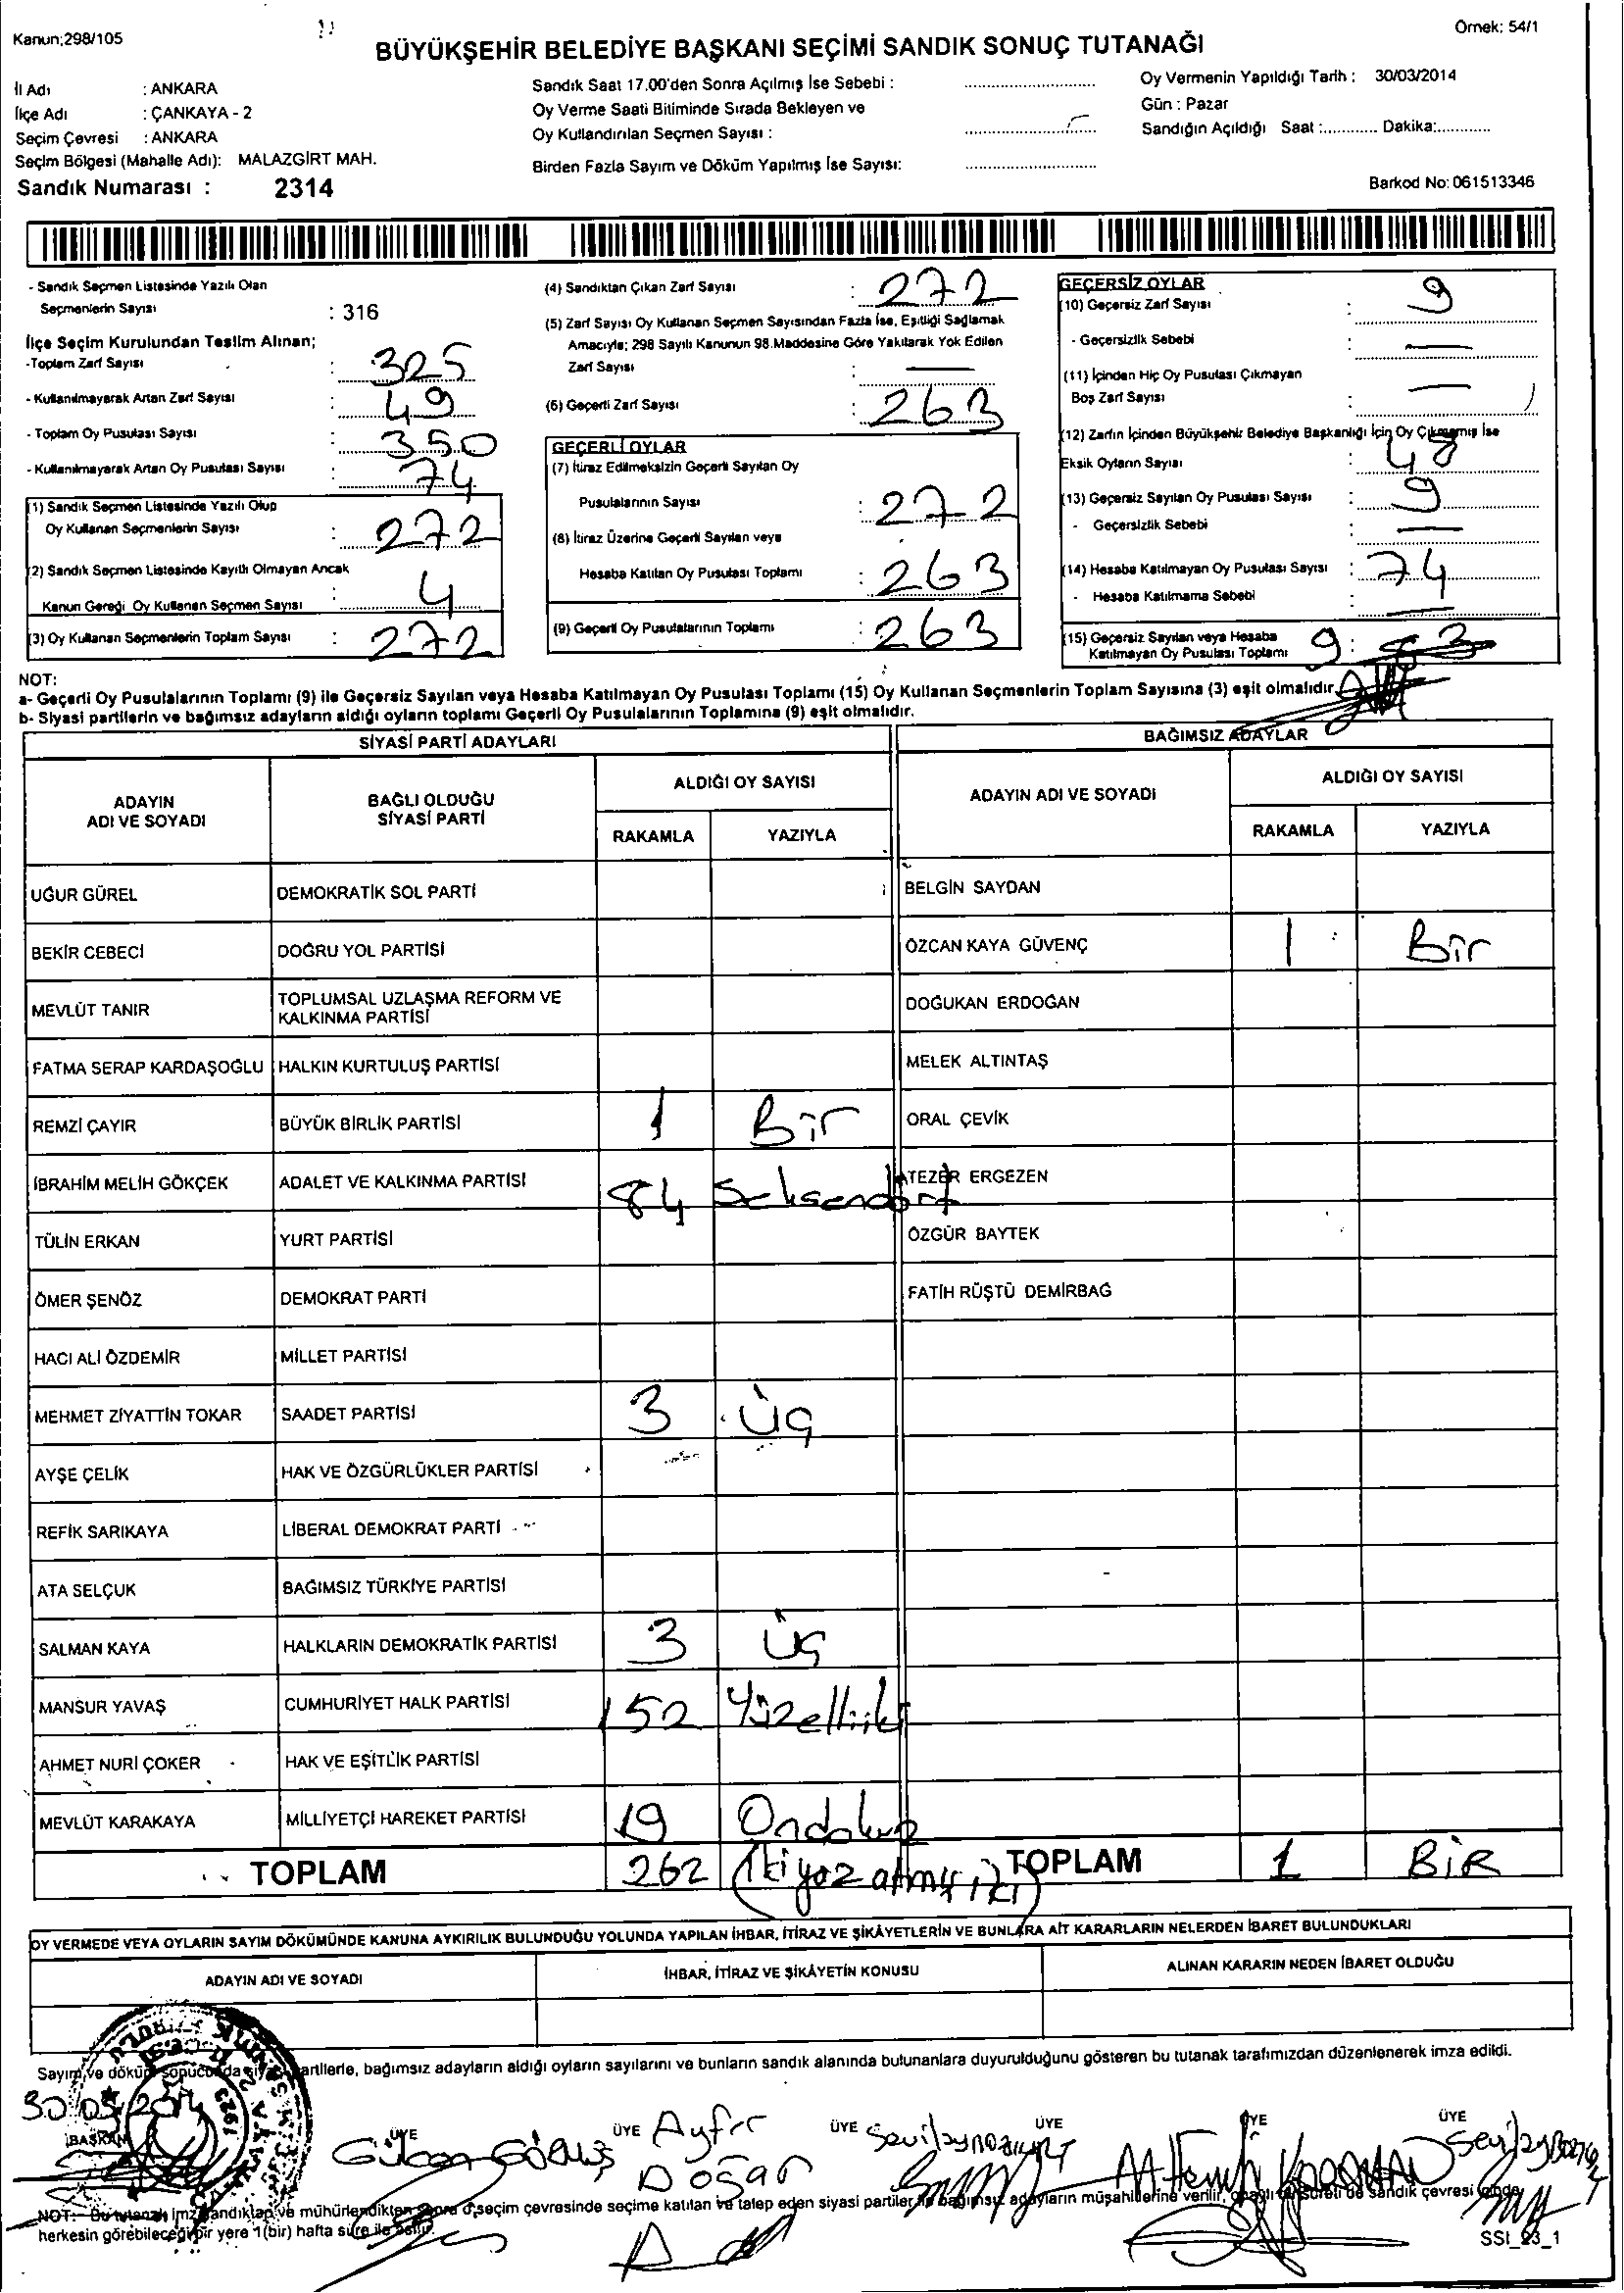 Kanun;298/105
Örnek: 54/1
BÜYÜKŞEHİR BELEDİYE BAŞKANI SEÇİMİ SANDIK SONUÇ TUTANAĞI
İl Adı : ANKARA
İlçe Adı : ÇANKAYA - 2
Seçim Çevresi : ANKARA
Seçim Bölgesi (Mahalle Adı): MALAZGİRT MAH.
Sandık Numarası : 2314
Sandık Saat 17.00'den Sonra Açılmış İse Sebebi :
Oy Verme Saati Bitiminde Sırada Bekleyen ve
Oy Kullandırılan Seçmen Sayısı :
Birden Fazla Sayım ve Döküm Yapılmış İse Sayısı:
Oy Vermenin Yapıldığı Tarih : 30/03/2014
Gün : Pazar
Sandığın Açıldığı Saat :............ Dakika:............
Barkod No: 061513346
- Sandık Seçmen Listesinde Yazılı Olan
Seçmenlerin Sayısı : 316
İlçe Seçim Kurulundan Teslim Alınan;
-Toplam Zarf Sayısı : 325
- Kullanılmayarak Artan Zarf Sayısı : 49
- Toplam Oy Pusulası Sayısı : 350
- Kullanılmayarak Artan Oy Pusulası Sayısı : 74
(1) Sandık Seçmen Listesinde Yazılı Olup
Oy Kullanan Seçmenlerin Sayısı : 272
(2) Sandık Seçmen Listesinde Kayıtlı Olmayan Ancak
Kanun Gereği Oy Kullanan Seçmen Sayısı : 4
(3) Oy Kullanan Seçmenlerin Toplam Sayısı : 272
(4) Sandıktan Çıkan Zarf Sayısı : 272
(5) Zarf Sayısı Oy Kullanan Seçmen Sayısından Fazla İse, Eşitliği Sağlamak
Amacıyla; 298 Sayılı Kanunun 98.Maddesine Göre Yakılarak Yok Edilen
Zarf Sayısı : —
(6) Geçerli Zarf Sayısı : 263
GEÇERLİ OYLAR
(7) İtiraz Edilmeksizin Geçerli Sayılan Oy
Pusulalarının Sayısı : 272
(8) İtiraz Üzerine Geçerli Sayılan veya
Hesaba Katılan Oy Pusulası Toplamı : 263
(9) Geçerli Oy Pusulalarının Toplamı : 263
GEÇERSİZ OYLAR
(10) Geçersiz Zarf Sayısı : 9
- Geçersizlik Sebebi —
(11) İçinden Hiç Oy Pusulası Çıkmayan
Boş Zarf Sayısı : —
(12) Zarfın İçinden Büyükşehir Belediye Başkanlığı İçin Oy Çıkmamış İse
Eksik Oyların Sayısı : 48
(13) Geçersiz Sayılan Oy Pusulası Sayısı : 9
- Geçersizlik Sebebi : —
(14) Hesaba Katılmayan Oy Pusulası Sayısı : 74
- Hesaba Katılmama Sebebi : —
(15) Geçersiz Sayılan veya Hesaba
Katılmayan Oy Pusulası Toplamı 9 :
NOT:
a- Geçerli Oy Pusulalarının Toplamı (9) ile Geçersiz Sayılan veya Hesaba Katılmayan Oy Pusulası Toplamı (15) Oy Kullanan Seçmenlerin Toplam Sayısına (3) eşit olmalıdır.
b- Siyasi partilerin ve bağımsız adayların aldığı oyların toplamı Geçerli Oy Pusulalarının Toplamına (9) eşit olmalıdır.
SİYASİ PARTİ ADAYLARI
BAĞIMSIZ ADAYLAR
ADAYIN ADI VE SOYADI
BAĞLI OLDUĞU SİYASİ PARTİ
ALDIĞI OY SAYISI
RAKAMLA YAZIYLA
ADAYIN ADI VE SOYADI
ALDIĞI OY SAYISI
RAKAMLA YAZIYLA
UĞUR GÜREL DEMOKRATİK SOL PARTİ
BEKİR CEBECİ DOĞRU YOL PARTİSİ
MEVLÜT TANIR TOPLUMSAL UZLAŞMA REFORM VE
KALKINMA PARTİSİ
FATMA SERAP KARDAŞOĞLU HALKIN KURTULUŞ PARTİSİ
REMZİ ÇAYIR BÜYÜK BİRLİK PARTİSİ 1 Bir
İBRAHİM MELİH GÖKÇEK ADALET VE KALKINMA PARTİSİ 84 Seksendört
TÜLİN ERKAN YURT PARTİSİ
ÖMER ŞENÖZ DEMOKRAT PARTİ
HACI ALİ ÖZDEMİR MİLLET PARTİSİ
MEHMET ZİYATTİN TOKAR SAADET PARTİSİ 3 üç
AYŞE ÇELİK HAK VE ÖZGÜRLÜKLER PARTİSİ
REFİK SARIKAYA LİBERAL DEMOKRAT PARTİ
ATA SELÇUK BAĞIMSIZ TÜRKİYE PARTİSİ
SALMAN KAYA HALKLARIN DEMOKRATİK PARTİSİ 3 üç
MANSUR YAVAŞ CUMHURİYET HALK PARTİSİ 152 Yüzelliiki
AHMET NURİ ÇOKER HAK VE EŞİTLİK PARTİSİ
MEVLÜT KARAKAYA MİLLİYETÇİ HAREKET PARTİSİ 19 Ondokuz
TOPLAM 262 (İkiyüz altmış iki)
BELGİN SAYDAN
ÖZCAN KAYA GÜVENÇ 1 Bir
DOĞUKAN ERDOĞAN
MELEK ALTINTAŞ
ORAL ÇEVİK
TEZER ERGEZEN
ÖZGÜR BAYTEK
FATİH RÜŞTÜ DEMİRBAĞ
TOPLAM 1 BİR
OY VERMEDE VEYA OYLARIN SAYIM DÖKÜMÜNDE KANUNA AYKIRILIK BULUNDUĞU YOLUNDA YAPILAN İHBAR, İTİRAZ VE ŞİKÂYETLERİN VE BUNLARA AİT KARARLARIN NELERDEN İBARET BULUNDUKLARI
ADAYIN ADI VE SOYADI İHBAR, İTİRAZ VE ŞİKÂYETİN KONUSU ALINAN KARARIN NEDEN İBARET OLDUĞU
Sayım ve döküm sonucunda siyasi partilerle, bağımsız adayların aldığı oyların sayılarını ve bunların sandık alanında bulunanlara duyurulduğunu gösteren bu tutanak tarafımızdan düzenlenerek imza edildi.
30.03.2014
BAŞKAN ÜYE ÜYE ÜYE ÜYE ÜYE ÜYE
Ayfer
Doğan
NOT:- Bu tutanak imzalandıktan ve mühürlendikten sonra o seçim çevresinde seçime katılan ve talep eden siyasi partiler ile bağımsız adayların müşahitlerine verilir, onaylı bir sureti de sandık çevresi içinde
herkesin görebileceği bir yere 1(bir) hafta süre ile asılır.
SSI_23_1